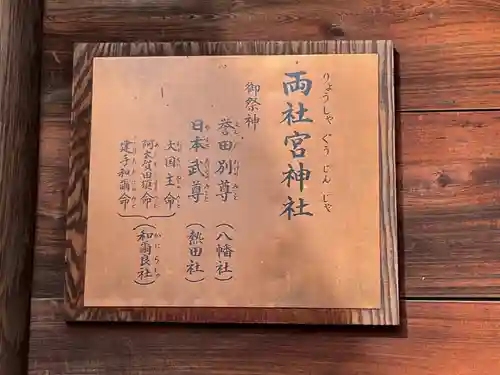 両社宮神社
りょうしゃぐうじんじゃ
御祭神
誉田別尊（八幡社）
日本武尊（熱田社）
大国主命
阿太賀田須命
建手和爾命
（和爾良社）
かにらしゃ